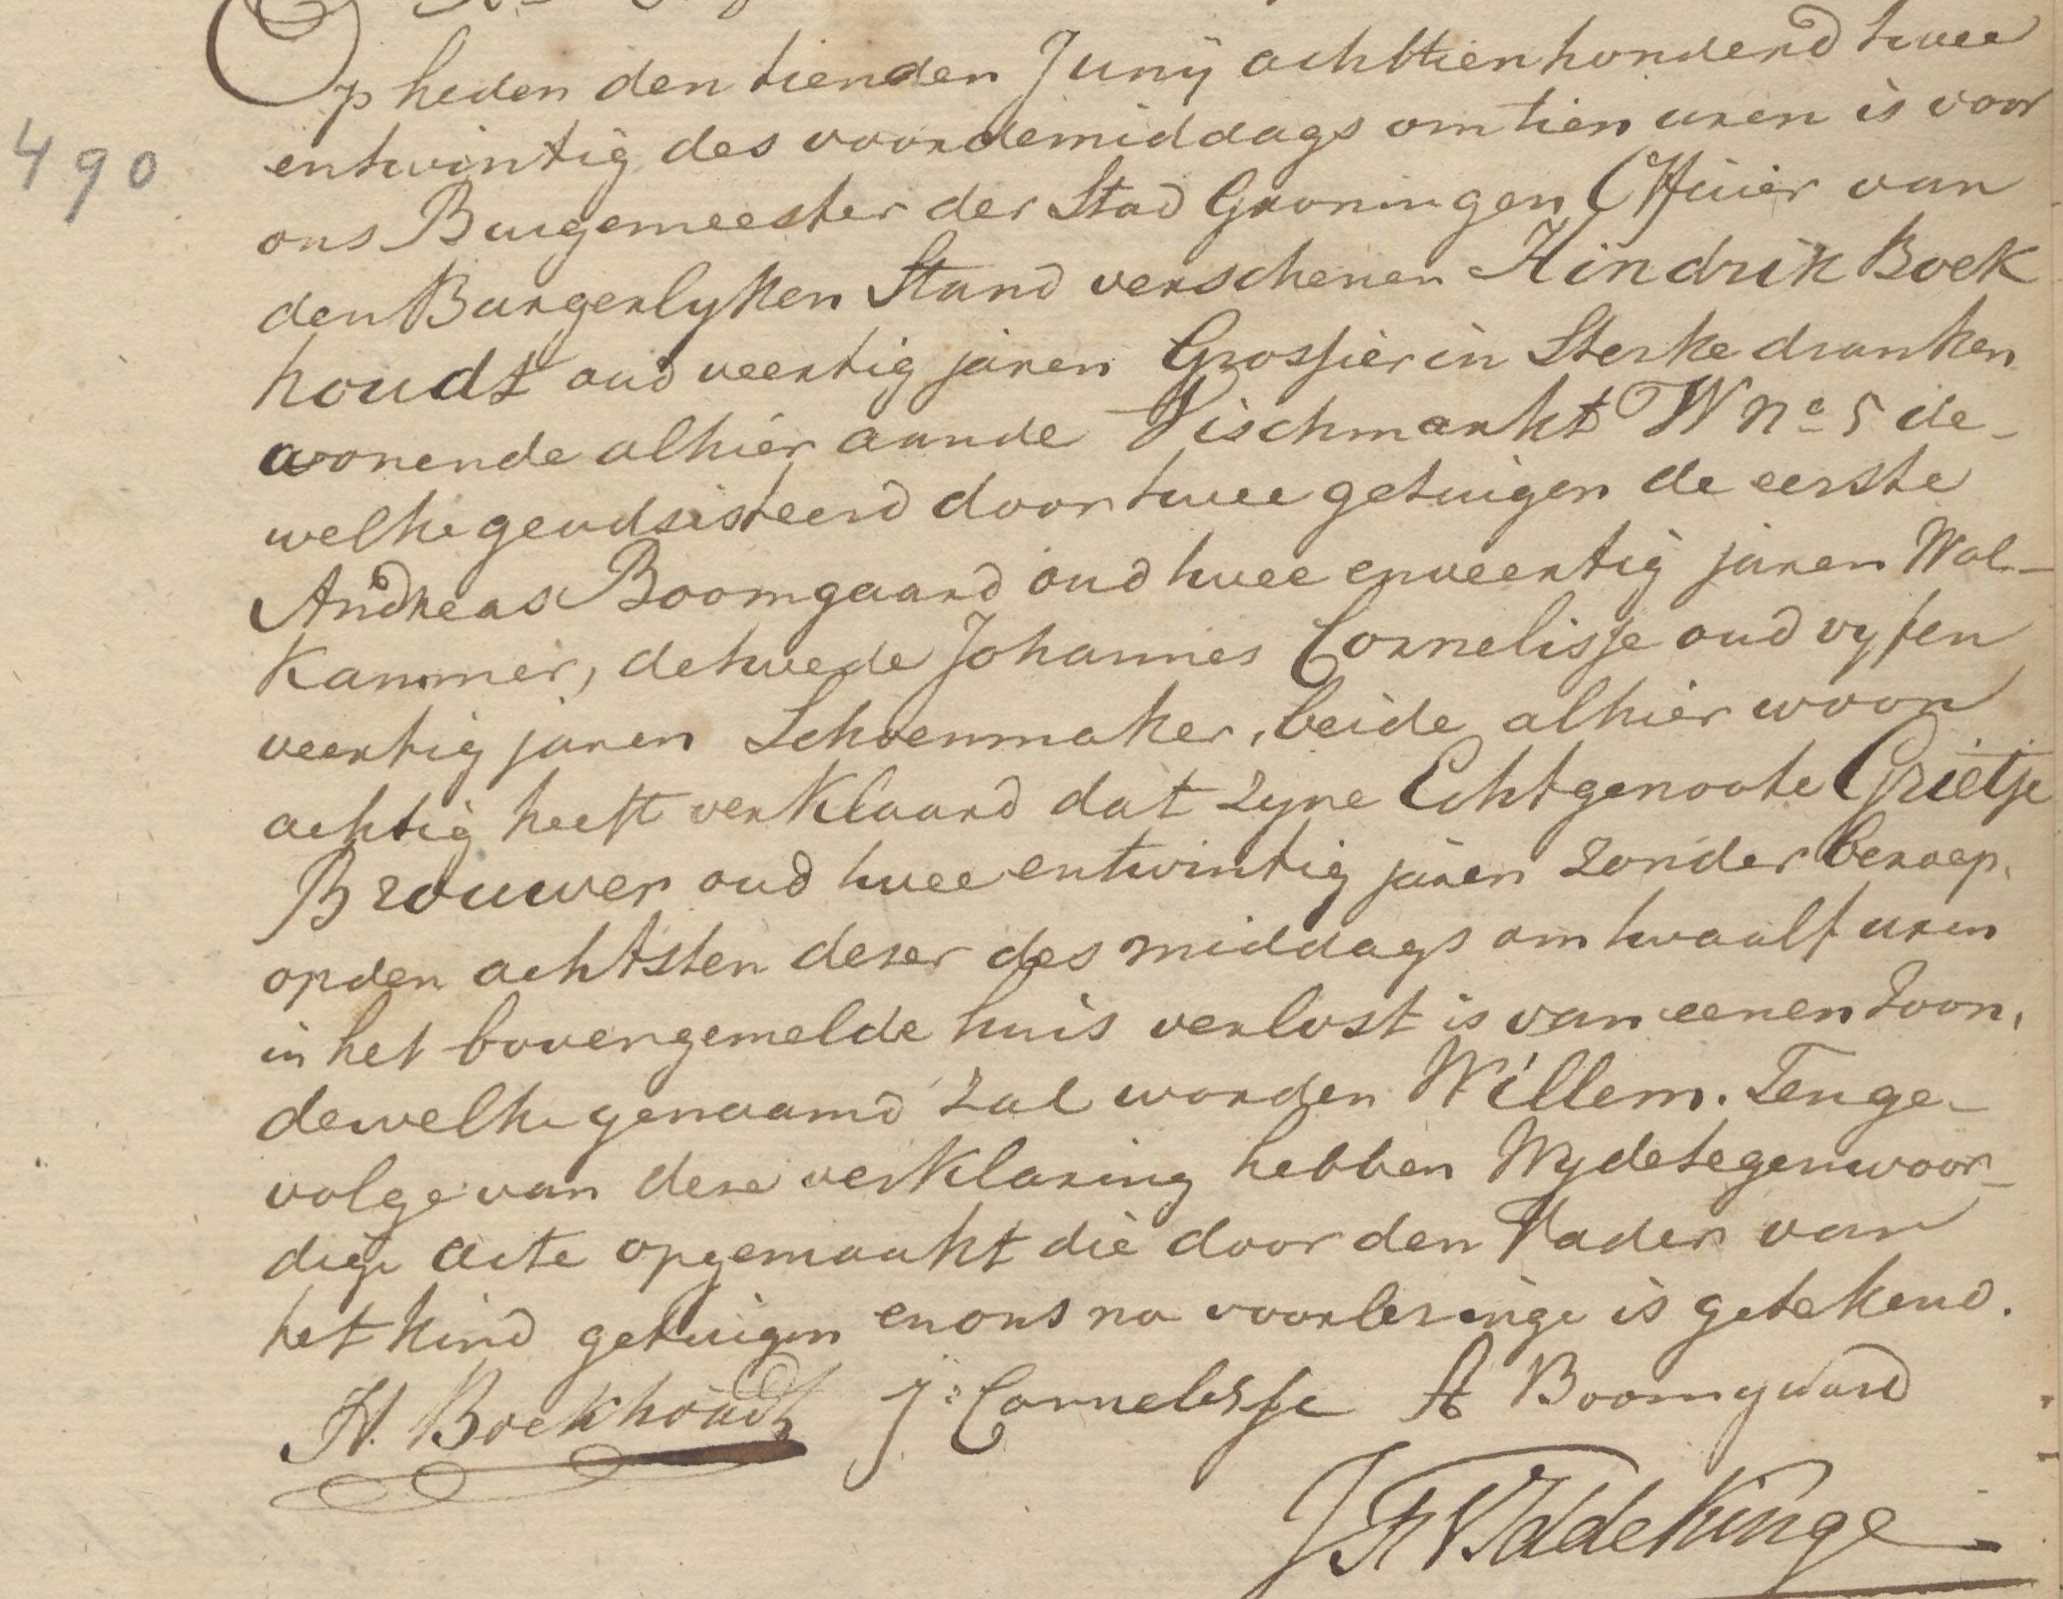 Op heden den tienden Junij achttienhonderd twee
490
entwintig des voordemiddags om tien uren is voor
ons Burgemeester der Stad Groningen Officier van
den Burgerlyken Stand verschenen Hindrik Boek
houdt oud veertig jaren Grossier in Sterke dranken
wonende alhier aande Vischmarkt W no 5 de-
welke geadsisteerd door twee getuigen de eerste
Andreas Boomgaard oud twee enveertig jaren Wol-
Kammer, de twede Johannes Cornelisse oud vyfen
veertig jaren Schoenmaker, beide alhier woon
achtig heeft verklaard dat zyne Echtgenoote Grietje
Brouwer oud twee entwintig jaren zonder beroep.
opden achtsten dezer des middags om twaalf uren
in het bovengemelde huis verlost is van eenen Zoon,
dewelke genaamd zal worden Willem. Tenge-
volge van deze verklaring hebben Wy de tegenwoor-
dige acte opgemaakt die door den Vader van
het kind getuigen en ons na voorlezinge is getekend.
H. Boekhoudt J: Cornelisse A Boomgaard